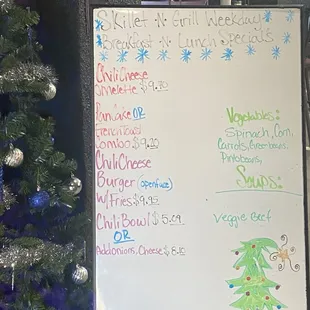 Skillet -N- Grill Weekday
Breakfast -N- Lunch Specials
Chili Cheese
Omelette $9.70
Pancake OR
French Toast
Combo $9.20
Chili Cheese
Burger (openface)
w/Fries $9.95
Chili Bowl $5.09
OR
Add onions, Cheese $6.10
Vegetables:
Spinach, Corn,
Carrots, Green beans,
Pinto beans,
Soups:
Veggie Beef